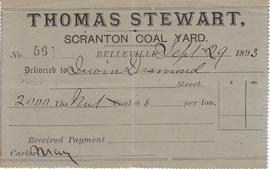 THOMAS STEWART,
SCRANTON COAL YARD.
No. 561 BELLEVILLE, Sept 29 1893
Delivered to Irwin Diamond
Street.
2000 Lbs. Nut Coal @ $ per ton.
Received Payment
Carter May